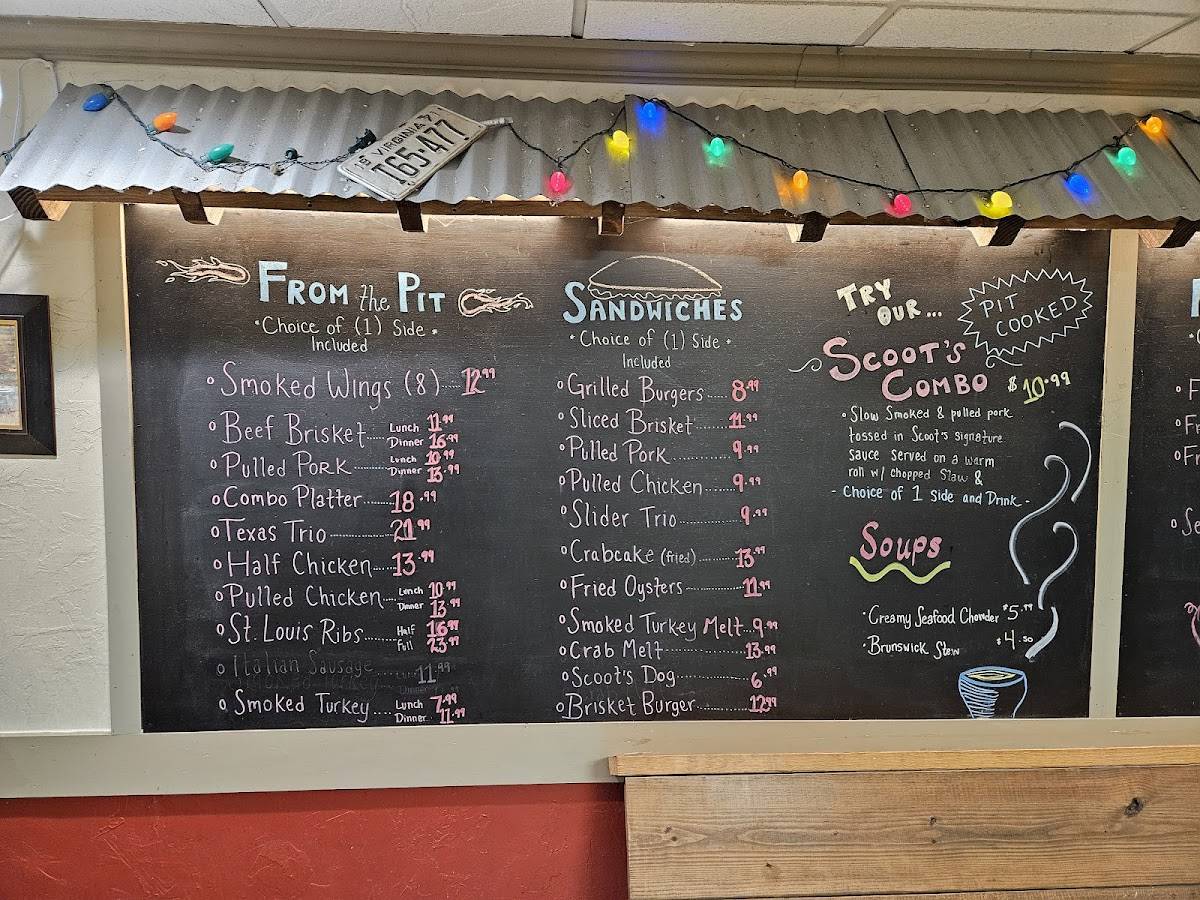 19 VIRGINIA 7
T65·477
FROM the PIT
•Choice of (1) Side•
Included
Smoked Wings (8) 12.99
Beef Brisket Lunch 11.99
Dinner 16.99
Pulled Pork Lunch 10.99
Dinner 13.99
Combo Platter 18.99
Texas Trio 21.99
Half Chicken 13.99
Pulled Chicken Lunch 10.99
Dinner 13.99
St. Louis Ribs Half 16.99
Full 23.99
Italian Sausage 11.99
Smoked Turkey Lunch 7.99
Dinner 11.99
SANDWICHES
•Choice of (1) Side•
Included
Grilled Burgers 8.99
Sliced Brisket 11.99
Pulled Pork 9.99
Pulled Chicken 9.99
Slider Trio 9.99
Crabcake (fried) 13.99
Fried Oysters 11.99
Smoked Turkey Melt 9.99
Crab Melt 13.99
Scoot's Dog 6.99
Brisket Burger 12.99
TRY
OUR...
PIT
COOKED
SCOOT'S
COMBO $10.99
•Slow Smoked & pulled pork
tossed in Scoot's signature
sauce served on a warm
roll w/ chopped slaw &
- Choice of 1 Side and Drink -
Soups
•Creamy Seafood Chowder $5.99
•Brunswick Stew $4.50